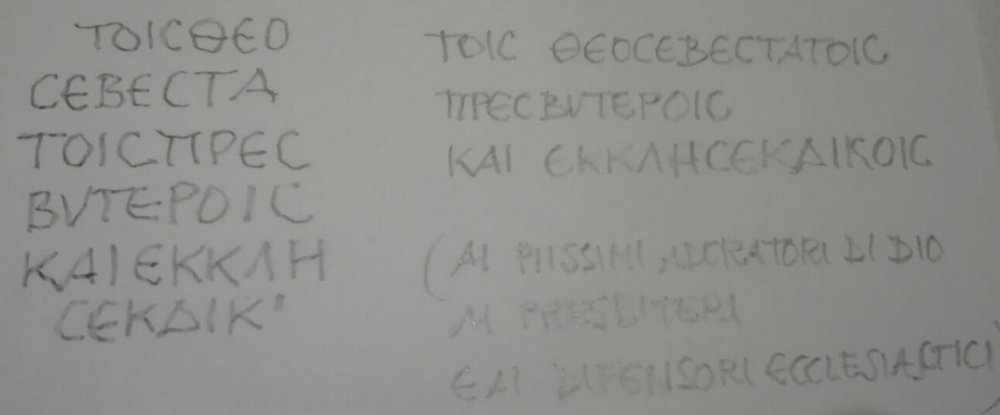 ΤΟΙCΘΕΟ
CΕΒΕCΤΑ
ΤΟΙCΠΡΕC
ΒVΤΕΡΟΙC
ΚΑΙΕΚΚΛΗ
CΕΚΔΙΚ'
ΤΟΙC ΘΕΟCΕΒΕCΤΑΤΟΙC
ΠΡΕCΒVΤΕΡΟΙC
ΚΑΙ ΕΚΚΛΗCΕΚΔΙΚΟΙC
(AI PIISSIMI, ADORATORI DI DIO
AI PRESBITERI
E AI DIFENSORI ECCLESIASTICI)